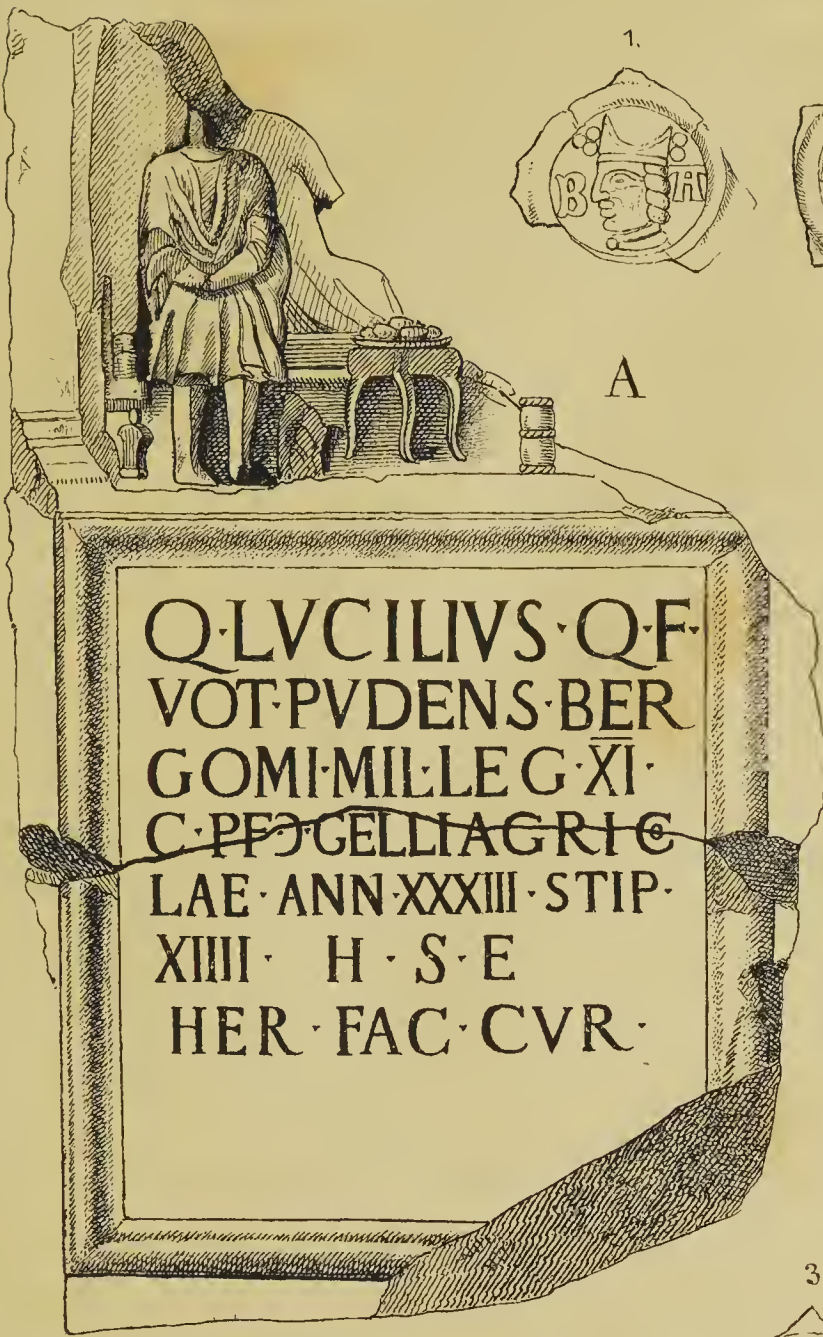 1.
B A
A
Q·LVCILIVS·Q·F·
VOT·PVDENS·BER
GOMI·MIL·LEG·X̅I̅·
C·PF·Ɔ·GELLIAGRIC
LAE·ANN·XXXIII·STIP·
XIIII· H·S·E
HER·FAC·CVR·
3